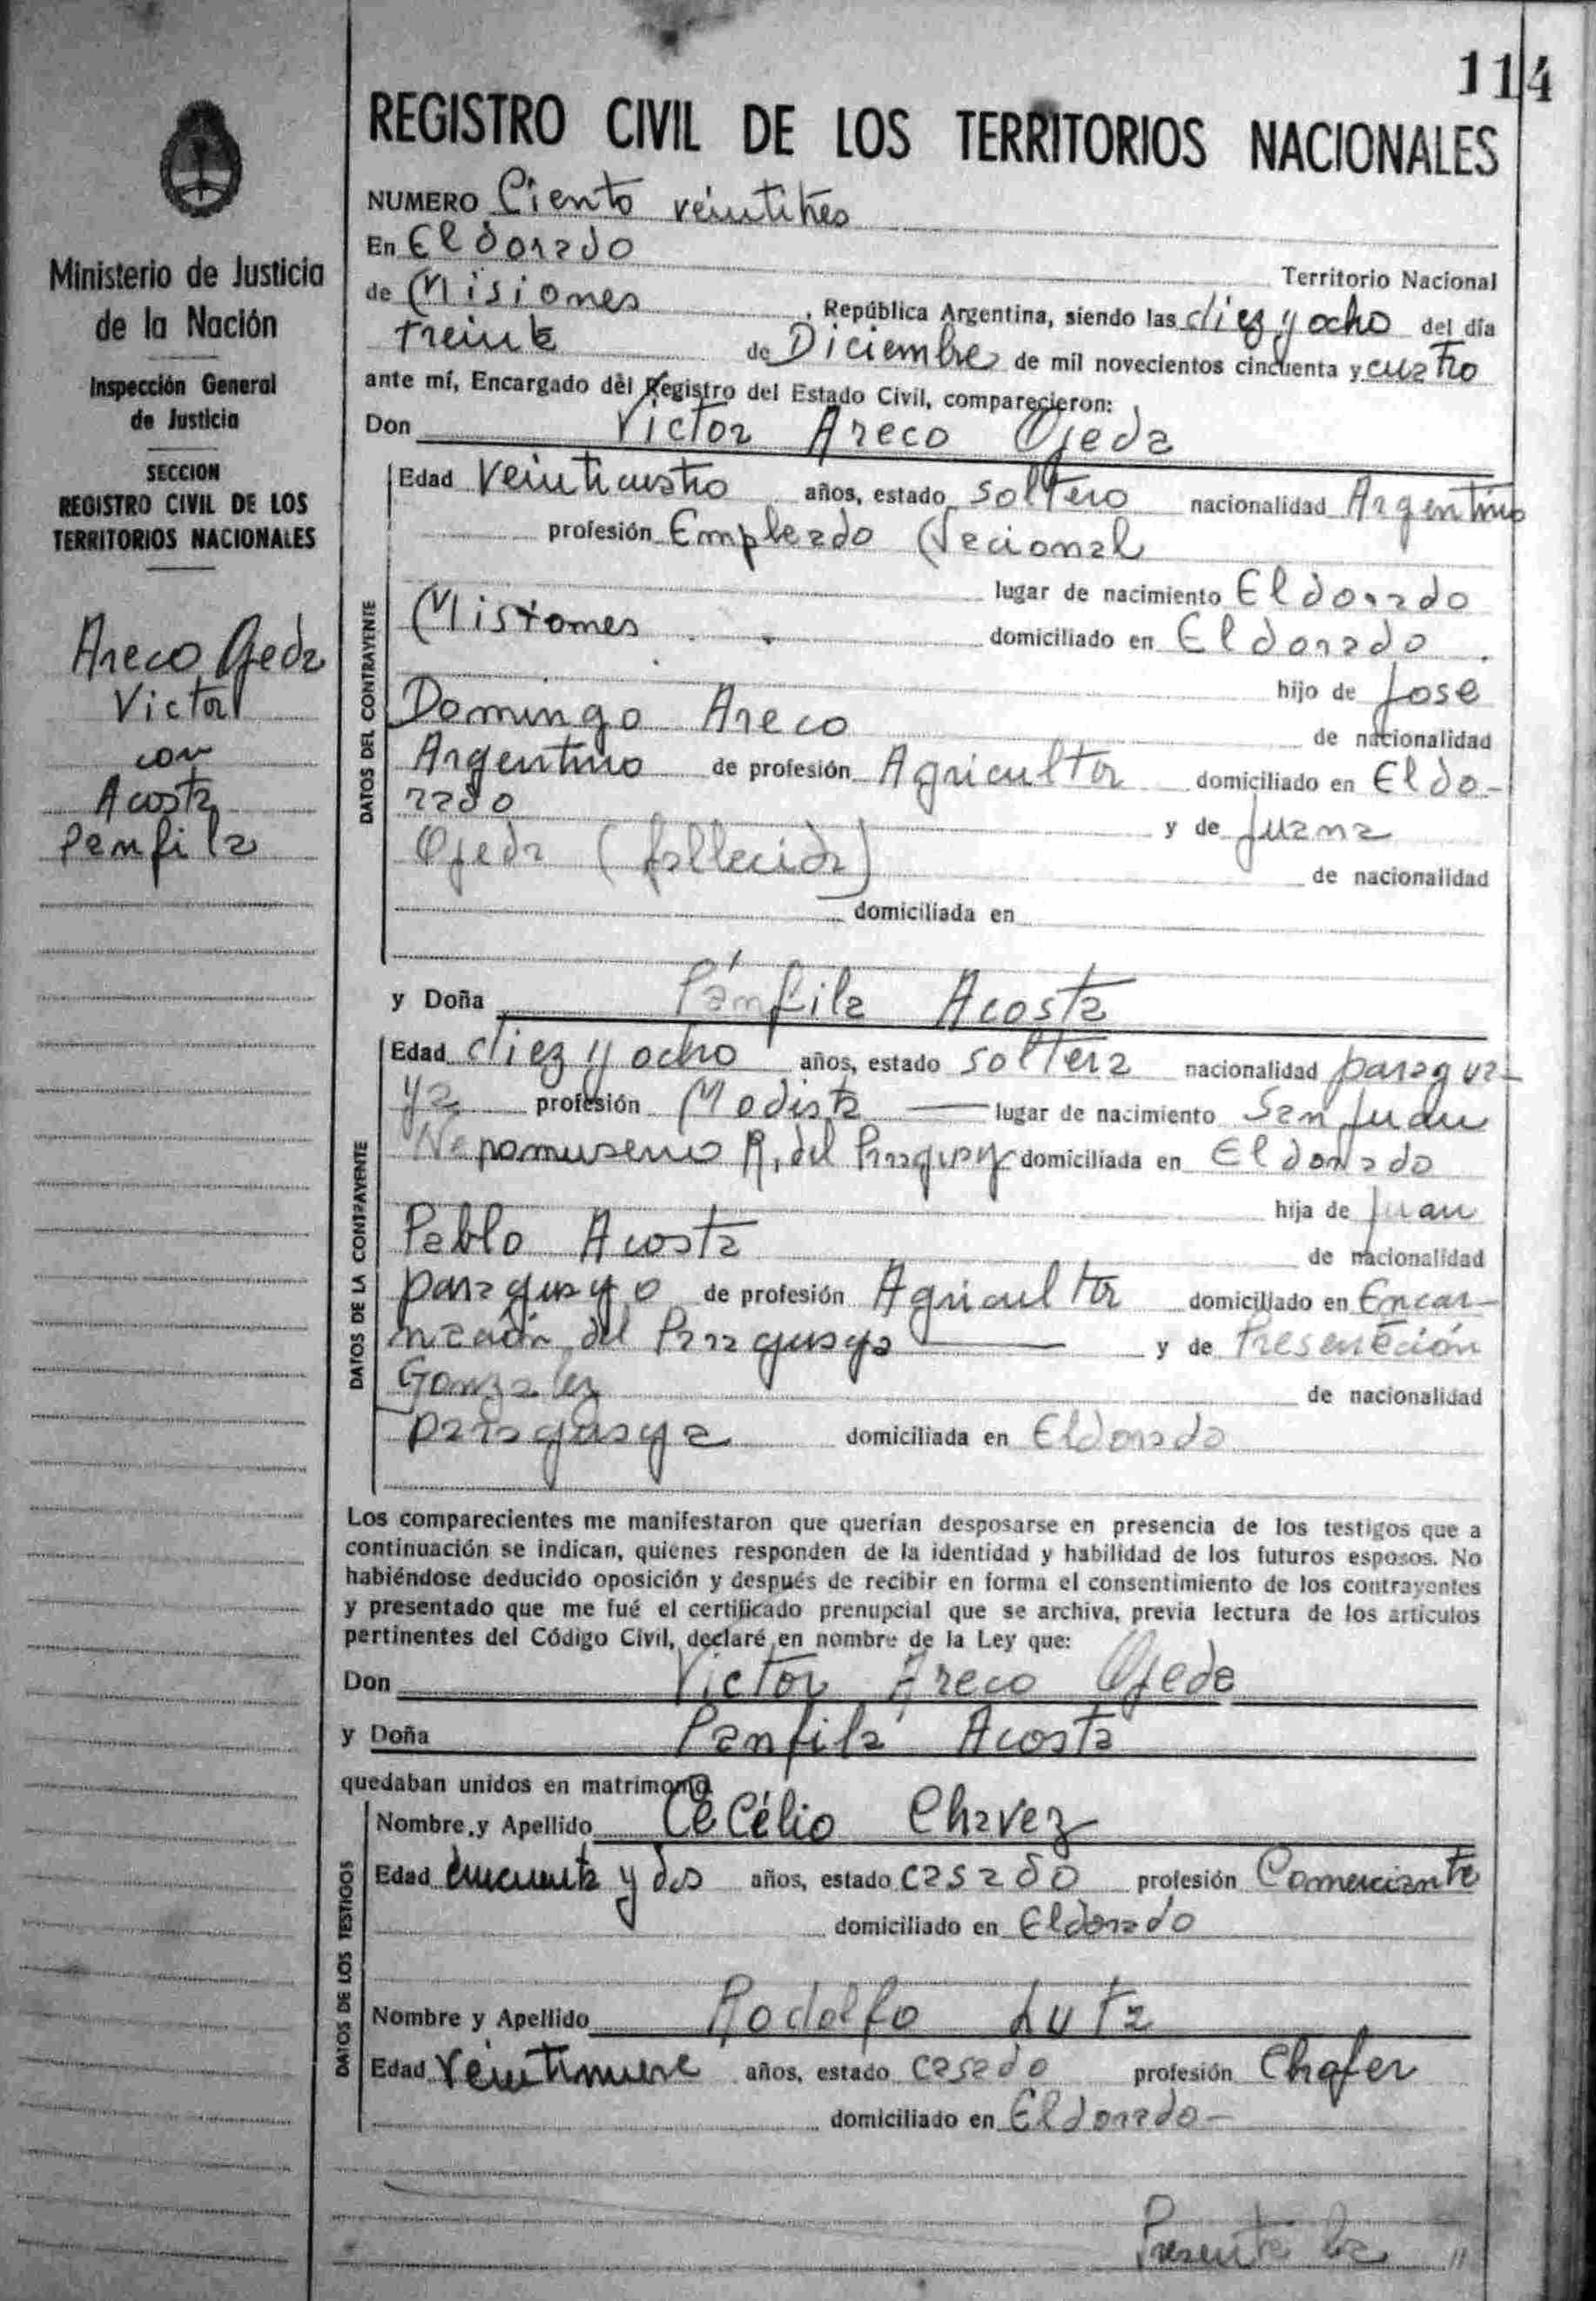 114
REGISTRO CIVIL DE LOS TERRITORIOS NACIONALES
Ministerio de Justicia
de la Nación
Inspección General
de Justicia
SECCION
REGISTRO CIVIL DE LOS
TERRITORIOS NACIONALES
Areco Ojeda
Victor
con
Acosta
Panfila
NUMERO Ciento veintitres
En Eldorado
Territorio Nacional
de Misiones, República Argentina, siendo las diez y ocho del día
treinta de Diciembre de mil novecientos cincuenta y cuatro
ante mí, Encargado del Registro del Estado Civil, comparecieron:
Don Victor Areco Ojeda
DATOS DEL CONTRAYENTE
Edad veinticuatro años, estado soltero nacionalidad Argentino
profesión Empleado Nacional
lugar de nacimiento Eldorado
Misiones domiciliado en Eldorado.
hijo de Jose
Domingo Areco de nacionalidad
Argentino de profesión Agricultor domiciliado en Eldo-
rado y de Juana
Ojeda (fallecida) de nacionalidad
domiciliada en
y Doña Pánfila Acosta
DATOS DE LA CONTRAYENTE
Edad diez y ocho años, estado soltera nacionalidad paragua-
ya profesión Modista lugar de nacimiento San Juan
Nepomuseno R. del Paraguay domiciliada en Eldorado
hija de Juan
Pablo Acosta de nacionalidad
paraguayo de profesión Agricultor domiciliado en Encar-
nación del Paraguayo y de Presentación
Gonzalez de nacionalidad
paraguaya domiciliada en Eldorado
Los comparecientes me manifestaron que querían desposarse en presencia de los testigos que a
continuación se indican, quienes responden de la identidad y habilidad de los futuros esposos. No
habiéndose deducido oposición y después de recibir en forma el consentimiento de los contrayentes
y presentado que me fué el certificado prenupcial que se archiva, previa lectura de los artículos
pertinentes del Código Civil, declaré en nombre de la Ley que:
Don Victor Areco Ojeda
y Doña Panfila Acosta
quedaban unidos en matrimonio
DATOS DE LOS TESTIGOS
Nombre y Apellido Cecélio Chavez
Edad cincuenta y dos años, estado casado profesión Comerciante
domiciliado en Eldorado
Nombre y Apellido Rodolfo Lutz
Edad veintinueve años, estado casado profesión Chofer
domiciliado en Eldorado-
Presente la //